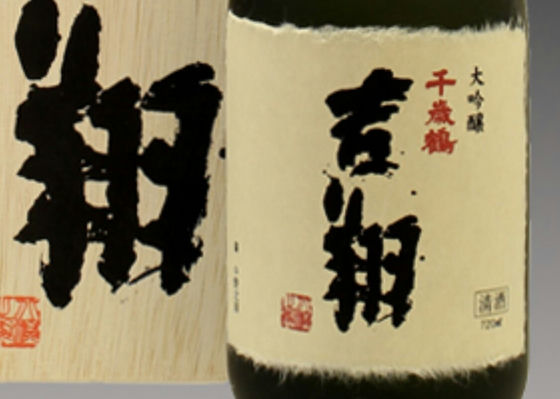 翔
大吟醸
千歳鶴
吉翔
清酒
720ml